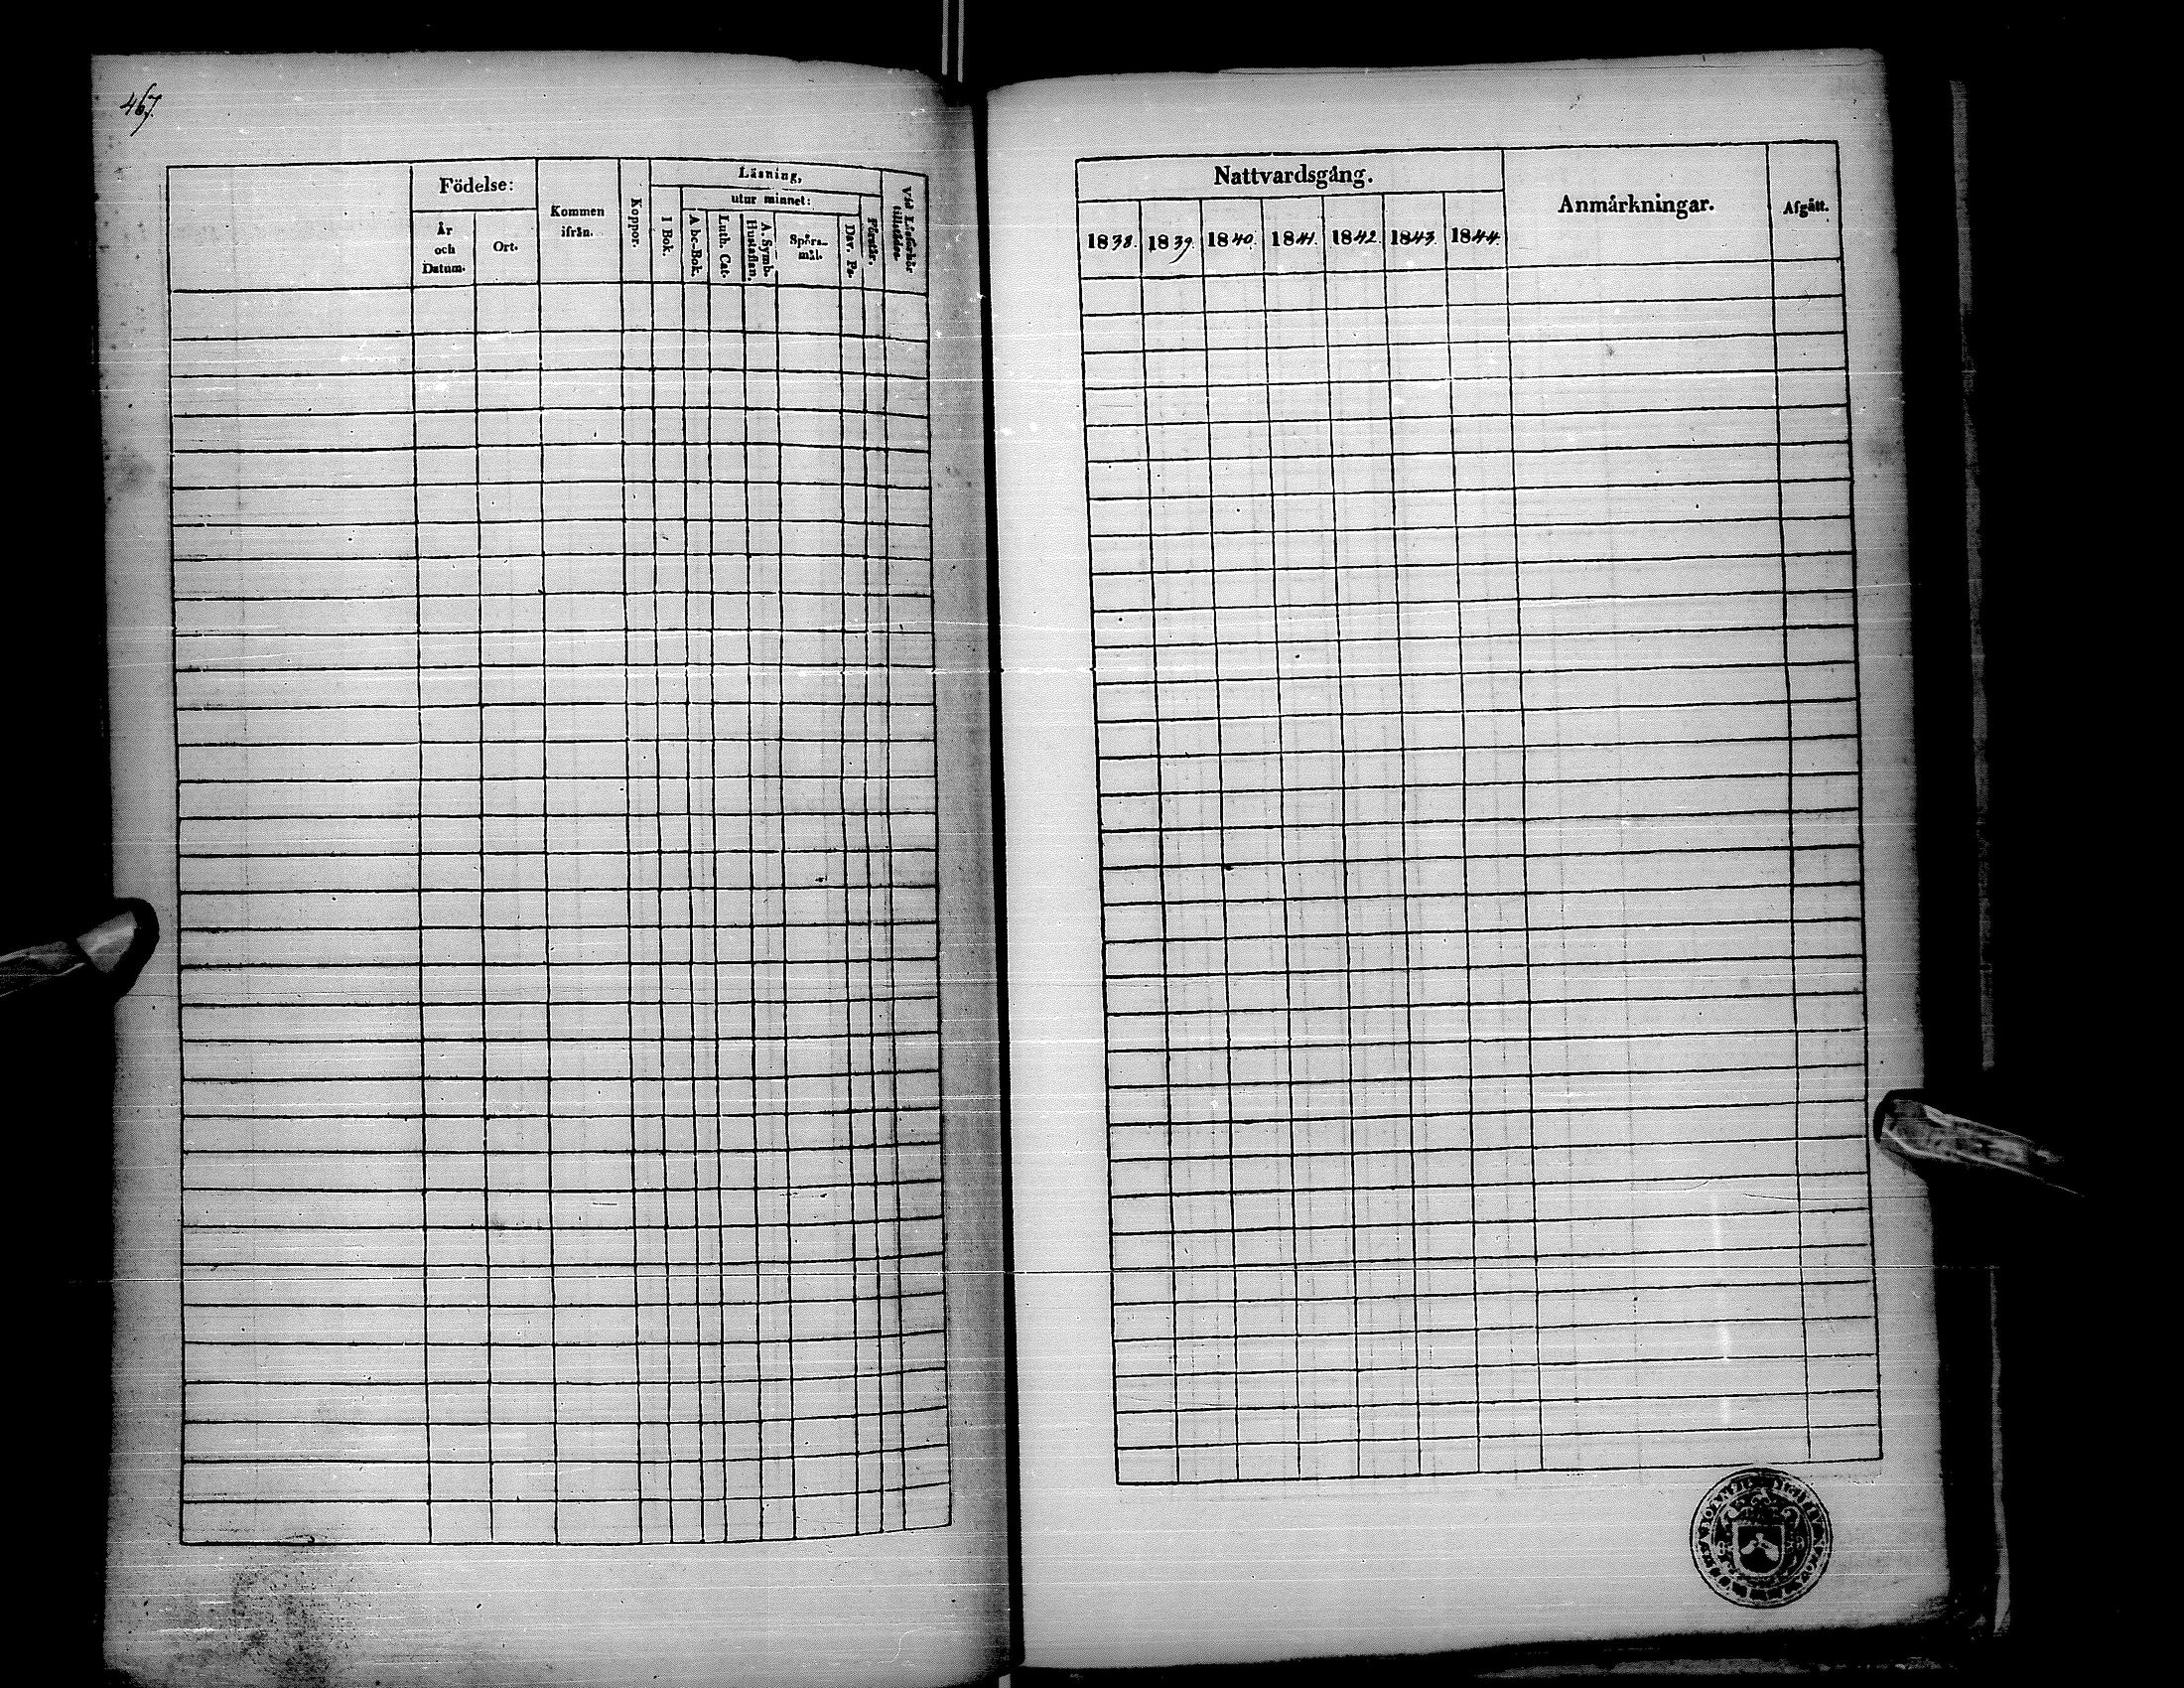 467.
Födelse:
År
och
Datum.
Ort.
Kommen
ifrån.
Koppor.
Läsning,
I Bok.
utur minnet:
A bc-Bok.
Luth. Cat.
A. Symb.
Hustaflan.
Spörs-
mål.
Dav. Ps.
Förstår.
Vid Läsförhör
tillstädes.
Nattvardsgång.
1838. 1839. 1840. 1841. 1842. 1843. 1844.
Anmärkningar.
Afgått.